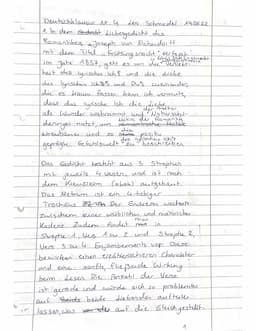 Deutschklausur Nr. 4 Leo Schmedel 14.06.22
1 In dem Liebesgedicht des
Romantikers Joseph von Eichendorff
mit dem Titel verfasst
im Jahre 1837, geht es um die
heit des lyrischen Ichs und die Liebe
des lyrischen Ichs und Du's zueinander,
die es kaum fassen kann. Ich vermute,
dass das lyrische Ich die Liebe
als Wunder wahrnimmt und
nutzt, um
und positiv
geprägte Gefühlswelt zu beschreiben
Das Gedicht besteht aus 3 Strophen
mit jeweils 4 Versen, und ist nach
dem Kreuzreim (abab) aufgebaut.
Das Metrum ist ein 4-hebiger
Trochäus Der Endreim wechselt
zwischen einer weiblichen und männlichen
Kadenz. Zudem findet man in
Strophe 1, Vers 1 zu 2 und Strophe 2,
Vers 3 zu 4 Enjambements vor. Diese
bewirken einen erzählerischen Charakter
und eine sanfte, fließende Wirkung
beim Lesen. Die Anzahl der Verse
ist gerade und würde sich so problemlos
auf beide Liebenden aufteilen
lassen, was auf die Gleichgestellt-
1